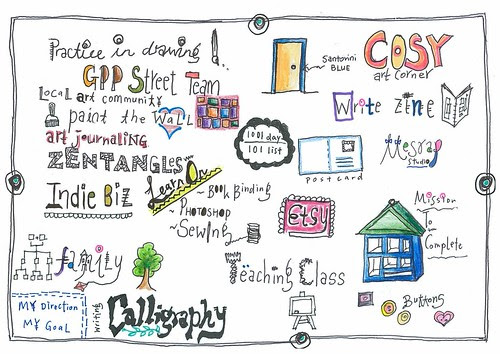 Practice in drawing!
GPP Street Team
Local art community
paint the Wall
art journaling
ZENTANGLES
Indie Biz
Learn On
~ Book Binding
~ PHOTOSHOP
~ Sewing
family
MY Direction
MY GoaL
writing
Calligraphy
1001 day
101 list
Santorini
BLUE
COSY
art corner
Write Zine
postcard
Mesraj
studio
Etsy
Teaching Class
Mission
To
Complete
Buttons